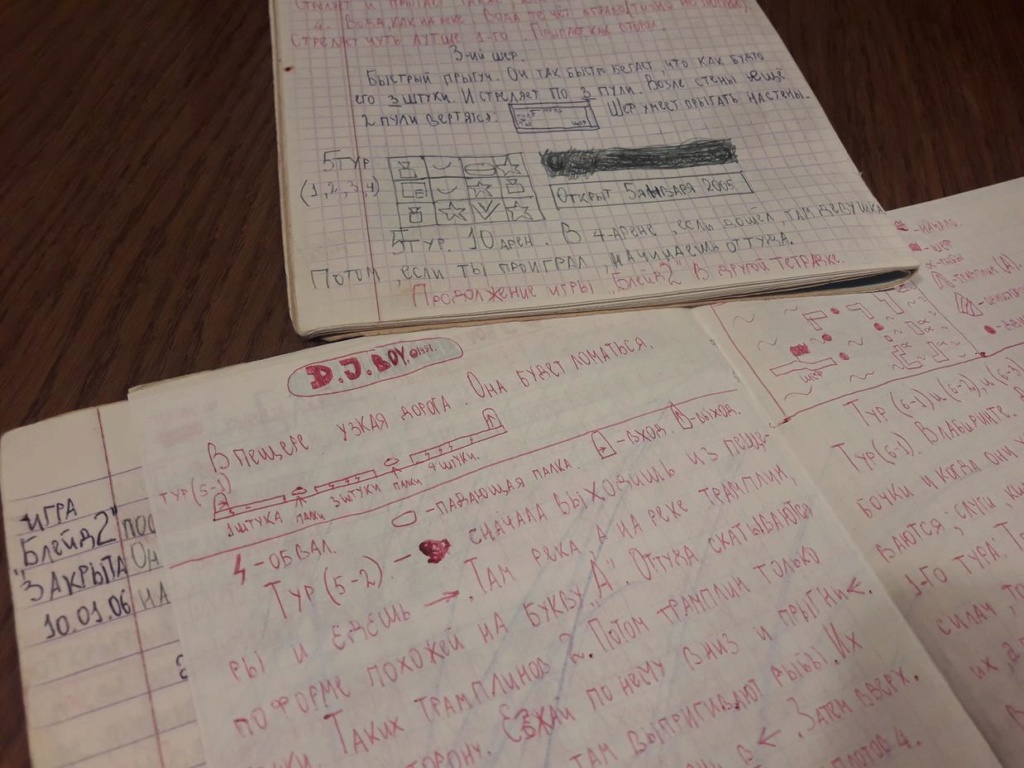 СТРЕЛЯЕТ И ПРЫГАЕТ ТАКЖЕ
4. ВОДА, КАК НА НИЖ. ВОДА ТЕЧЁТ
СТРЕЛЯЕТ ЧУТЬ ЛУТШЕ 1-ГО
3-ИЙ ШЕР.
БЫСТРЫЙ ПРЫГУН. ОН ТАК БЫСТРО БЕГАЕТ, ЧТО КАК БУДТО
ЕГО 3 ШТУКИ. И СТРЕЛЯЕТ ПО 3 ПУЛИ. ВОЗЛЕ СТЕНЫ ЕЩЁ
2 ПУЛИ ВЕРТЯТСЯ. ШЕР УМЕЕТ ПРЫГАТЬ НА СТЕНЫ.
5 ТУР
(1,2,3,4)
ОТКРЫТ 5 ЯНВАРЯ 2005
5 ТУР. 10 АРЕН. В 4 АРЕНЕ, ЕСЛЬ ДОШЁЛ, ТАМ ДЕВУШКА
ПОТОМ, ЕСЛИ ТЫ ПРОИГРАЛ, НАЧИНАЕШЬ ОТТУДА.
ПРОДОЛЖЕНИЕ ИГРЫ "БЛЕЙД2" В ДРУГОЙ ТЕТРАДКЕ.
D.J.BOY
В ПЕЩЕРЕ УЗКАЯ ДОРОГА. ОНА БУДЕТ ЛОМАТЬСЯ.
ТУР (5-1)
1 ШТУКА ПАЛКИ 3 ШТУКИ ПАЛКИ 4 ШТУКИ
-ПАДАЮЩАЯ ПАЛКА. -ВХОД. -ВЫХОД.
-ОБВАЛ.
ТУР (5-2). - СНАЧАЛА ВЫХОДИШЬ ИЗ ПЕЩЕ-
РЫ И ЕДЕШЬ →. ТАМ РЕКА, А НА РЕКЕ ТРАМПЛИН,
ПО ФОРМЕ ПОХОЖЕЙ НА БУКВУ "А". ОТТУДА СКАТЫВАЮТСЯ
ТАКИХ ТРАМПЛИНОВ 2. ПОТОМ ТРАМПЛИН ТОЛЬКО
СТОРОНУ. СЪЕХАЙ ПО НЕМУ ВНИЗ И ПРЫГНИ ←.
ТАМ ВЫПРИГИВАЮТ РЫБЫ. ИХ
В ←. ЗАТЕМ ВВЕРХ.
4.
ИГРА
"БЛЕЙД2"
ЗАКРЫТА
10.01.06
ПОС
ОН
НА
-НАЧАЛО.
-ШЕР
ШЕР
ТУР (6-1) И (6-2), И (6-3)
ТУР (6-1). В ЛАБИРИНТЕ.
БОЧКИ И КОГДА ОНИ
ВАЮТСЯ, СЛУГИ, КИ
1-ГО ТУРА.
СИЛАЧ, ТО
ИХ, 2